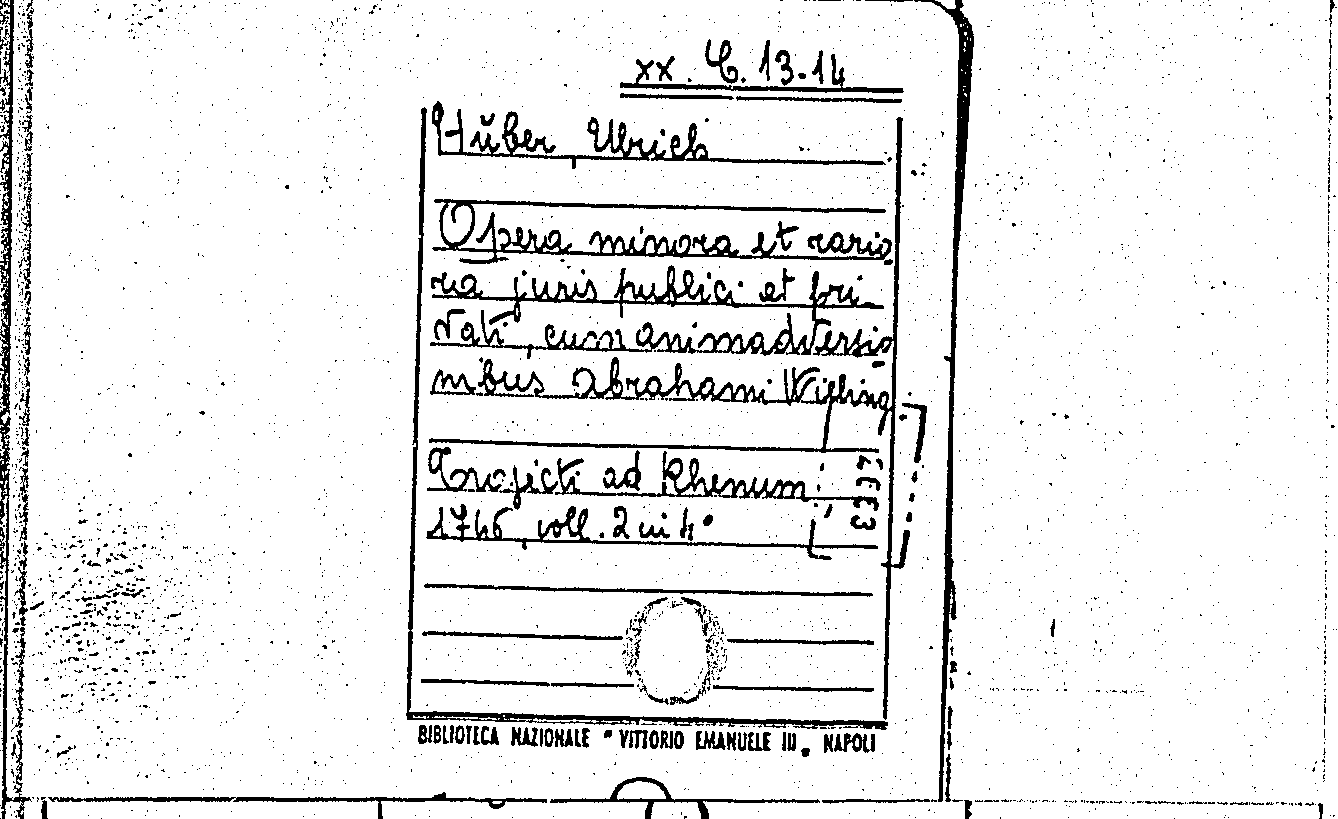 xx. C. 13-14
Hŭber, Ulrich
Opera minora et rario
ra juris publici et pri-
vati, cum animadversio
nibus Abrahami Wieling
Trajecti ad Rhenum
1746, voll. 2 in 4°
BIBLIOTECA NAZIONALE "VITTORIO EMANUELE III„ NAPOLI